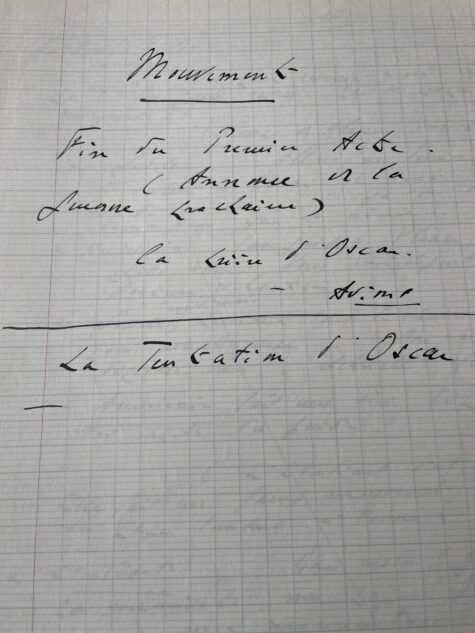 Mouvement
Fin du Premier Acte.
(Annonce de la
guerre prochaine)
la prière d'Oscar.
-
La Tentation d'Oscar
—